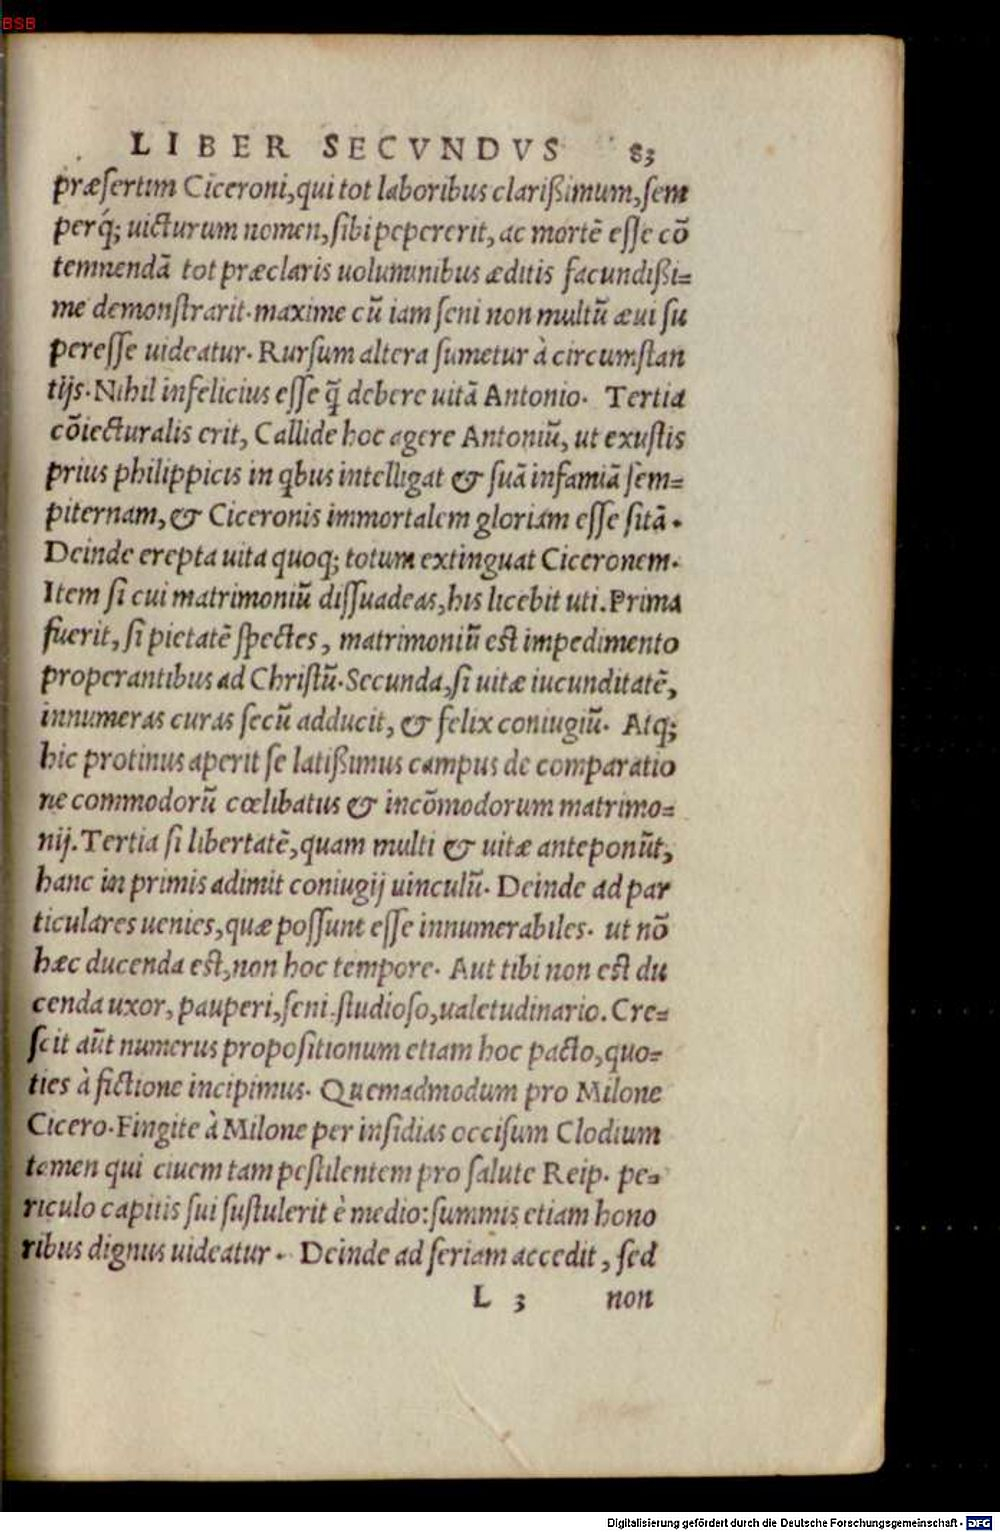 BSB
LIBER SECVNDVS 83
præſertim Ciceroni,qui tot laboribus clarißimum,ſem
perq́; uicturum nomen,ſibi pepererit, ac mortē eſſe cō
temnendā tot præclaris uoluminibus æditis facundißi=
me demonſtrarit.maxime cū iam ſeni non multū æui ſu
pereſſe uideatur. Rurſum altera ſumetur à circumſtan
tijs.Nihil infelicius eſſe q̃ debere uitā Antonio. Tertia
cōiecturalis erit, Callide hoc agere Antoniū, ut exuſtis
prius philippicis in qbus intelligat & ſuā infamiā ſem=
piternam,& Ciceronis immortalem gloriam eſſe ſitā.
Deinde erepta uita quoq; totum extinguat Ciceronem.
Item ſi cui matrimoniū diſſuadeas,his licebit uti.Prima
fuerit, ſi pietatē ſpectes, matrimoniū eſt impedimento
properantibus ad Chriſtū.Secunda,ſi uitæ iucunditatē,
innumeras curas ſecū adducit, & felix coniugiū. Atq;
hic protinus aperit ſe latißimus campus de comparatio
ne commodorū cœlibatus & incōmodorum matrimo=
nij.Tertia ſi libertatē,quam multi & uitæ anteponūt,
hanc in primis adimit coniugij uinculū. Deinde ad par
ticulares uenies,quæ poſſunt eſſe innumerabiles. ut nō
hæc ducenda eſt,non hoc tempore. Aut tibi non eſt du
cenda uxor, pauperi,ſeni.ſtudioſo,ualetudinario. Cre=
ſcit aūt numerus propoſitionum etiam hoc pacto,quo=
ties à fictione incipimus. Quemadmodum pro Milone
Cicero.Fingite à Milone per inſidias occiſum Clodium
tamen qui ciuem tam peſtilentem pro ſalute Reip. pe=
riculo capitis ſui ſuſtulerit è medio:ſummis etiam hono
ribus dignus uideatur. Deinde ad ſeriam accedit, ſed
L 3 non
Digitalisierung gefördert durch die Deutsche Forschungsgemeinschaft - DFG